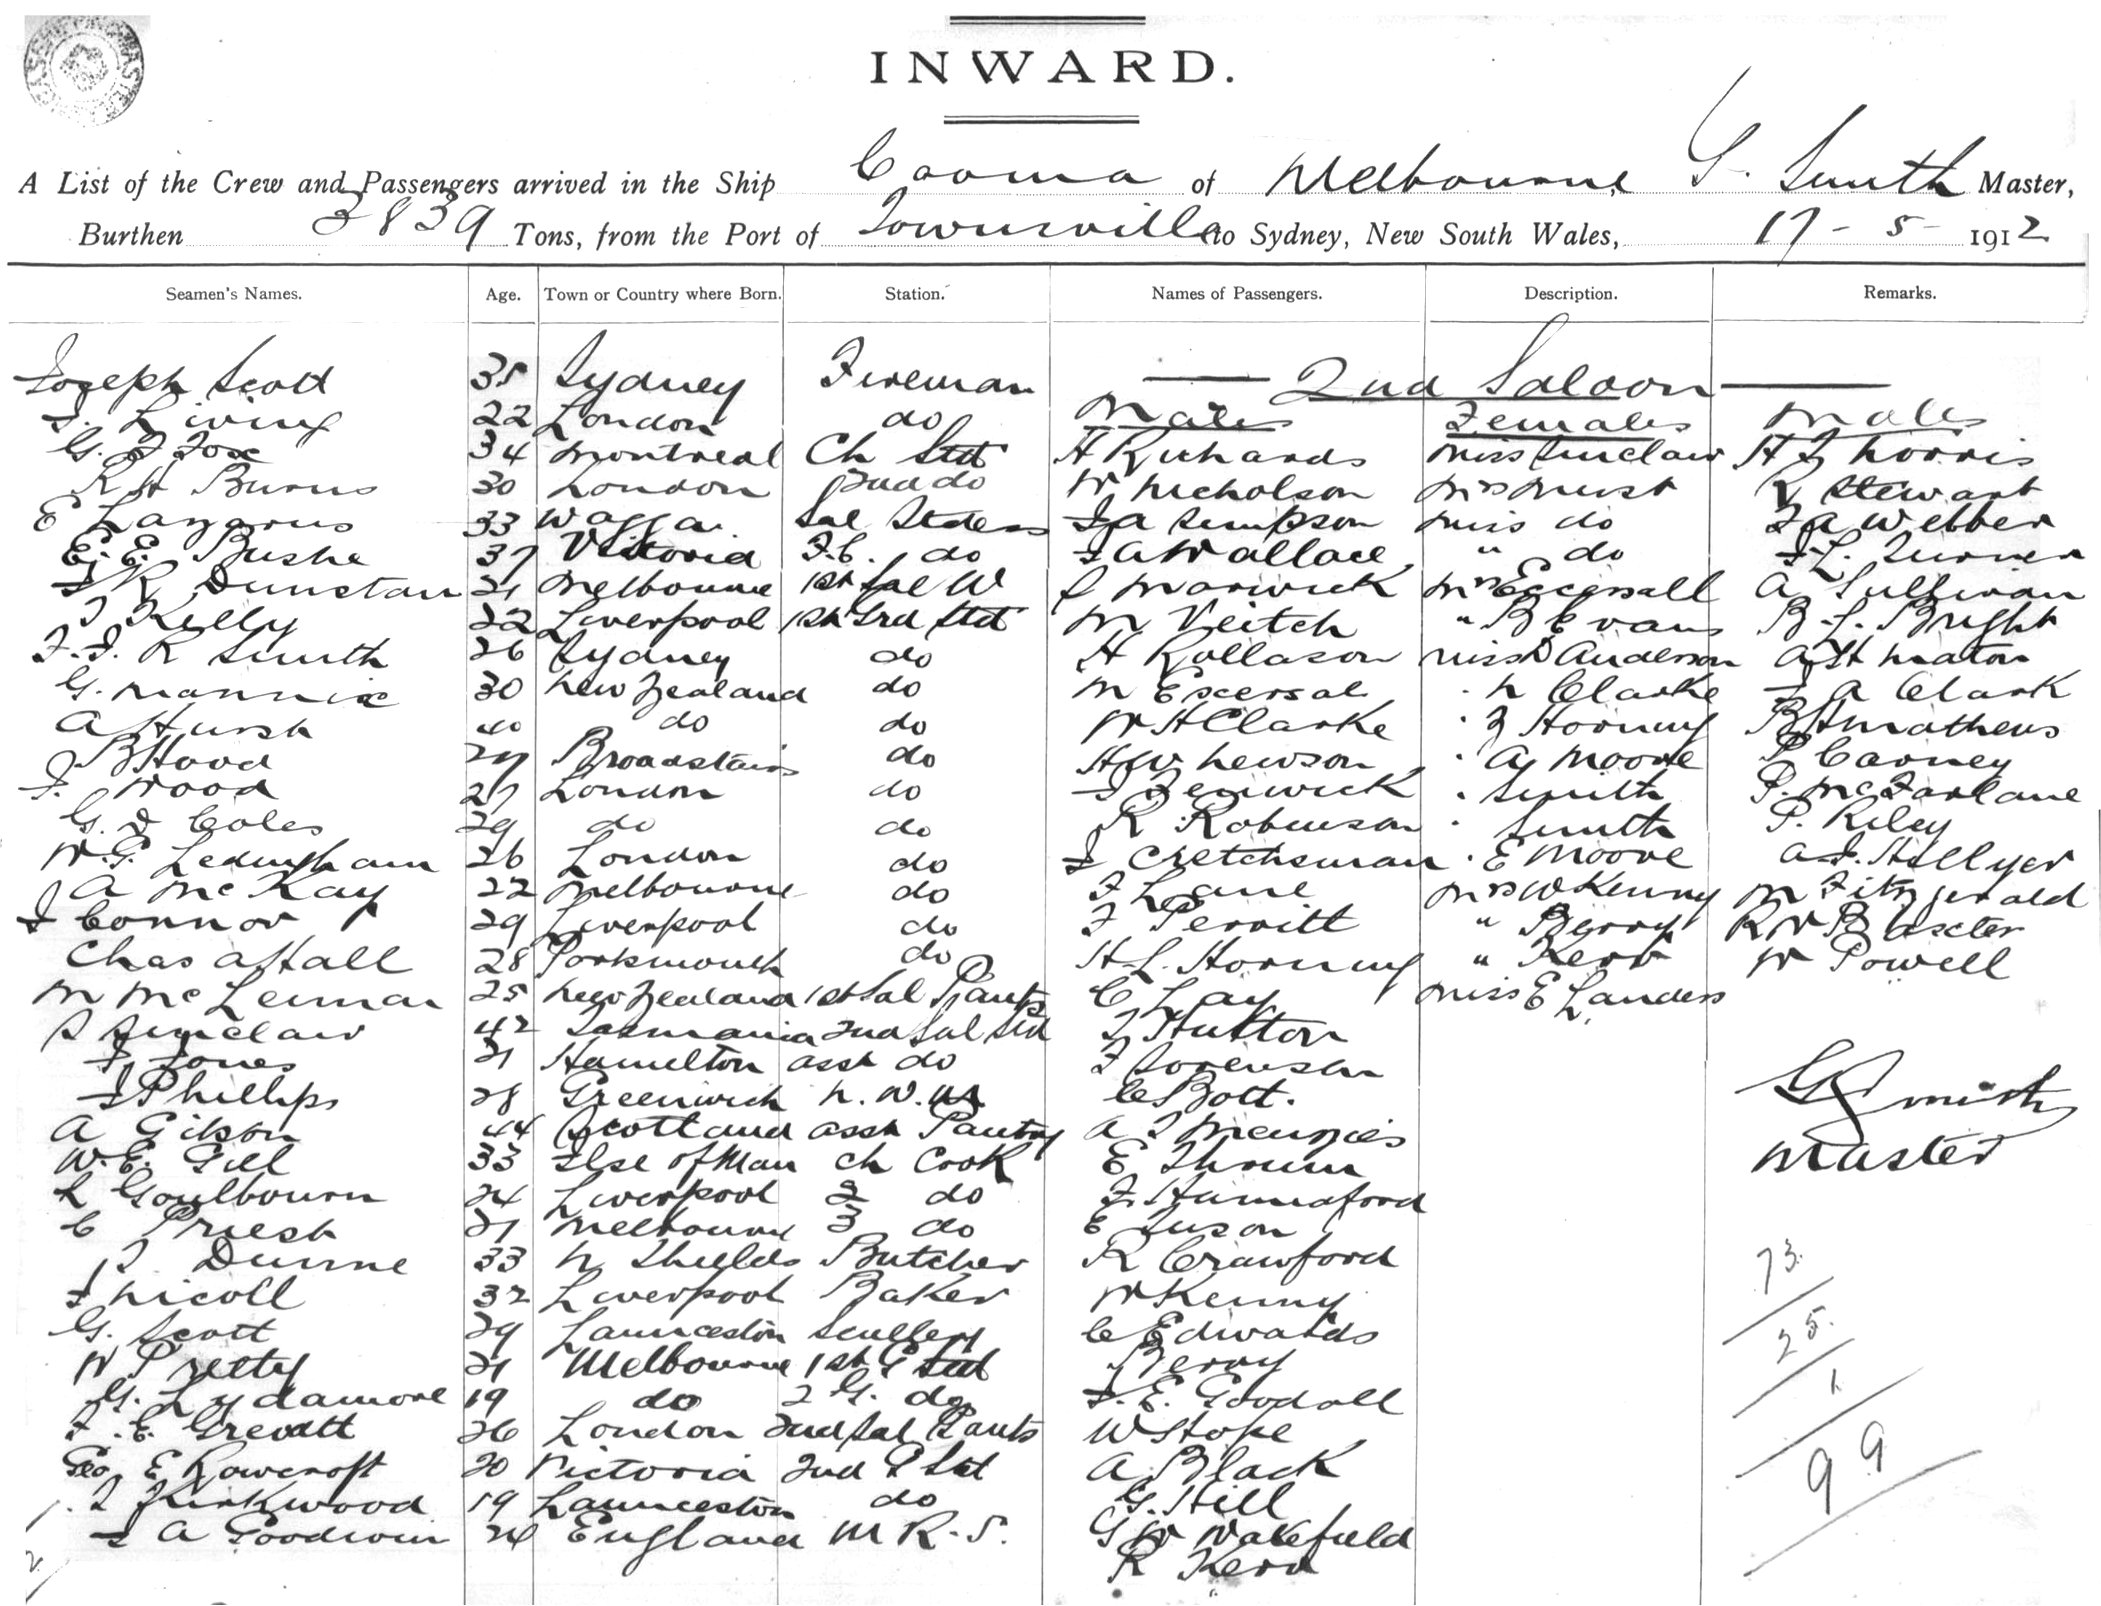 INWARD.
A List of the Crew and Passengers arrived in the Ship Cooma of Melbourne, G. Smith Master,
Burthen 3839 Tons, from the Port of Townsville to Sydney, New South Wales, 17-5-1912
Seamen's Names. Age. Town or Country where Born. Station. Names of Passengers. Description. Remarks.
Joseph Scott 35 Sydney Fireman 2nd Saloon
22 London do Males Females Males
G. F Fox 34 Montreal Ch Std H Richards Miss Sinclair H J Norris
R H Burns 30 London 2nd do W Nicholson Mrs Hurst R Stewart
E Lazarus 33 Wagga Sal J A Simpson Miss do J A Webber
E. E. Bushe 37 Victoria F.C. do J A Wallace " do J. L. Turner
J R Dunstan 21 Melbourne 1st Sal W J Marwick Mrs Eccersall A Sullivan
J Kelly 22 Liverpool 1st 3rd Std M Veitch " B Evans B. L. Bright
F. J. R Smith 26 Sydney do H Rollason Miss D Anderson A H Maton
G. Mannix 30 New Zealand do M Eccersal " N Clarke J A Clark
A Hurst 40 do do W H Clarke " Z Horning B H Mathews
B Hood 27 Broadstairs do H W Newson " A Moore P Carney
J. Wood 27 London do J Fenwick " Smith P. McFarlane
G. J Coles 29 do do R Robinson " Smith P. Riley
W. G. Ledingham 26 London do J Cretchsman " E Moore A. J. Hillyer
A McKay 22 Melbourne do F Lane Mrs W Kenny M Fitzgerald
J Connor 29 Liverpool do F Perritt " Berry R W Baxter
Chas A Hall 28 Portsmouth do H. L. Horning " Kerr W Powell
M McLennan 25 New Zealand 1st Sal Pants C Lay Miss E Landers
S Sinclair 42 Tasmania 2nd Sal Std J Hutton
J. Jones 21 Hamilton asst do F Sorensen
J Phillips 28 Greenwich N. W. C Bott.
A Gibson 44 Scotland asst Pantry A J Menzies
W. E. Gill 33 Isle of Man Ch Cook E Thrum
L Goulbourn 24 Liverpool 2 do F. Hannaford
C Priest 21 Melbourne 3 do E Tuson
J. Dunne 33 N Shields Butcher R Crawford
J Nicoll 32 Liverpool Baker W Kenny
G. Scott 29 Launceston Scullery C Edwards
W Pretty 21 Melbourne 1st G Std Berry
G. Lydamore 19 do 2 G. do J. E. Goodall
F. E. Grevatt 26 London 2nd Sal Pants W Stope
Geo E Rowcroft 20 Victoria 2nd G Std A Black
J Kirkwood 19 Launceston do G. Hill
J A Goodwin 24 England M R. S. G W Wakefield
R Kerr
G Smith
Master
73.
25.
1
99